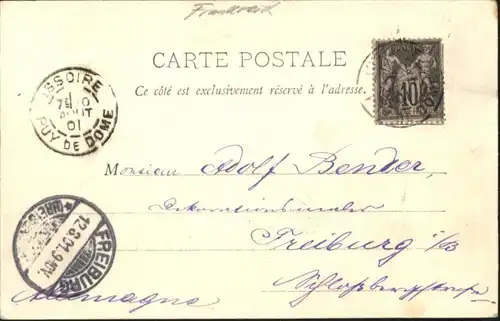 Frankreich
CARTE POSTALE
Ce côté est exclusivement réservé à l'adresse.
POSTE
10
ISSOIRE
7E 10
AOUT
01
PUY DE DOME
Monsieur Adolf Bender,
Dekorationsmaler
Freiburg i/B
Schloßbergstraße
Allemagne
FREIBURG
12.8.01.9-10V.
(BREISGAU)